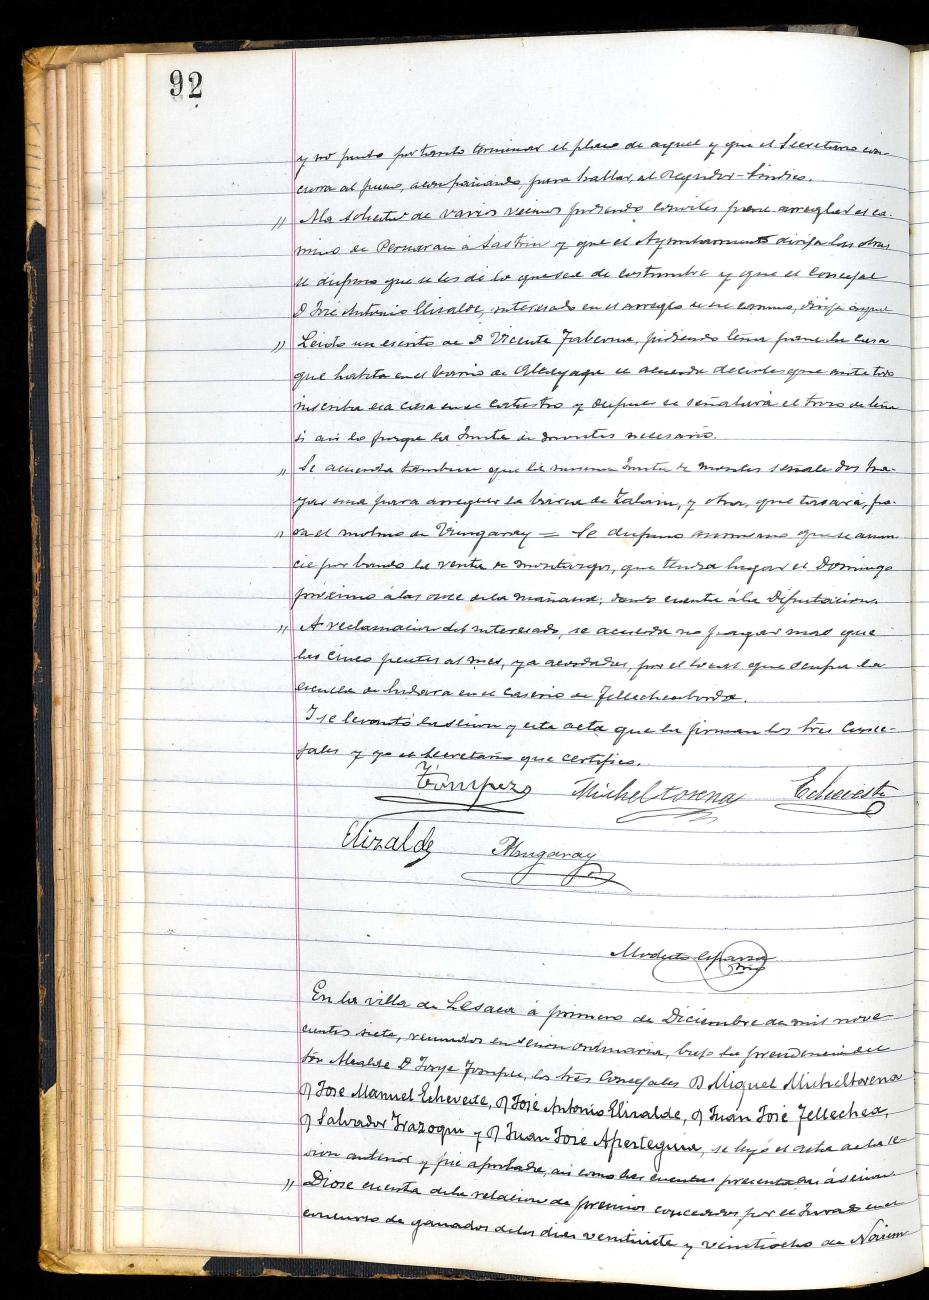 92
y no pudo por tanto terminar el plazo de aquel y que el Secretario con-
curra al juicio, acompañando para hablar, al Regidor-Síndico.
" A la solicitud de varios vecinos pidiendo convites para arreglar el ca-
mino de á Sastrin y que el Ayuntamiento dirija las obras
se dispuso que se les dé lo que sea de costumbre y que el Concejal
D José Antonio Elizalde, interesado en el arreglo de ese camino, dirija aque
" Leido un escrito de D Vicente Taberna, pidiendo leña para la casa
que habita en el barrio de Alcayaga se acuerda decirle que ante todo
inscriba esa casa en el catastro y despues se señalará el trozo de leña
si asi lo juzga la Junta de montes necesario.
" Se acuerda tambien que la misma Junta de montes señale dos ha-
yas una para arreglar la barca de Zalain, y otra, que tasará, pa-
" ra el molino de = Se dispuso asimismo que se anun
cie por bando la venta de montazgos, que tendrá lugar el Domingo
próximo á las once de la mañana, dando cuenta á la Diputacion.
" A reclamacion del interesado, se acuerda no pagar mas que
las cinco pesetas al mes, ya acordadas, por el local que ocupa la
escuela de en el caserio de Tellechenborda.
I se levantó la sesion y esta acta que la firman los Sres Conce-
jales y yo el Secretario que certifico.
Tompez Micheltorena Echeveste
Elizalde
Modesto Esparza
Srio
En la villa de Lesaca á primero de Diciembre de mil nove
cientos siete, reunidos en sesion ordinaria, bajo la presidencia del
Sor Alcalde D Jorje Tompes, los Sres Concejales D Miguel Micheltorena
D José Manuel Echeveste, D José Antonio Elizalde, D Juan José Tellechea,
D Salvador Irazoqui y D Juan José Apezteguia, se leyó el acta de la se-
sion anterior y fué aprobada, asi como las cuentas presentadas á sesion
" Diose cuenta de la relacion de premios concedidos por el Jurado en el
concurso de ganados de los dias veintisiete y veintiocho de Noviem-